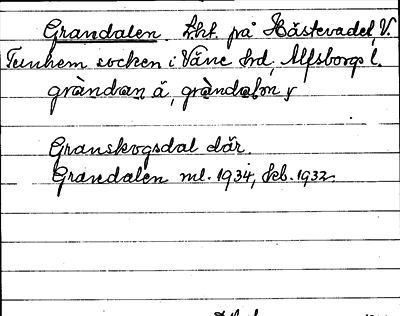 Grandalen. t.ht. på Hästevadet, V.
Tunhem socken i Väne hrd, Älfsborgs l.
gràndan ä, gràndalən y
Granskogsdal där.
Grandalen ml. 1934, kb. 1932.